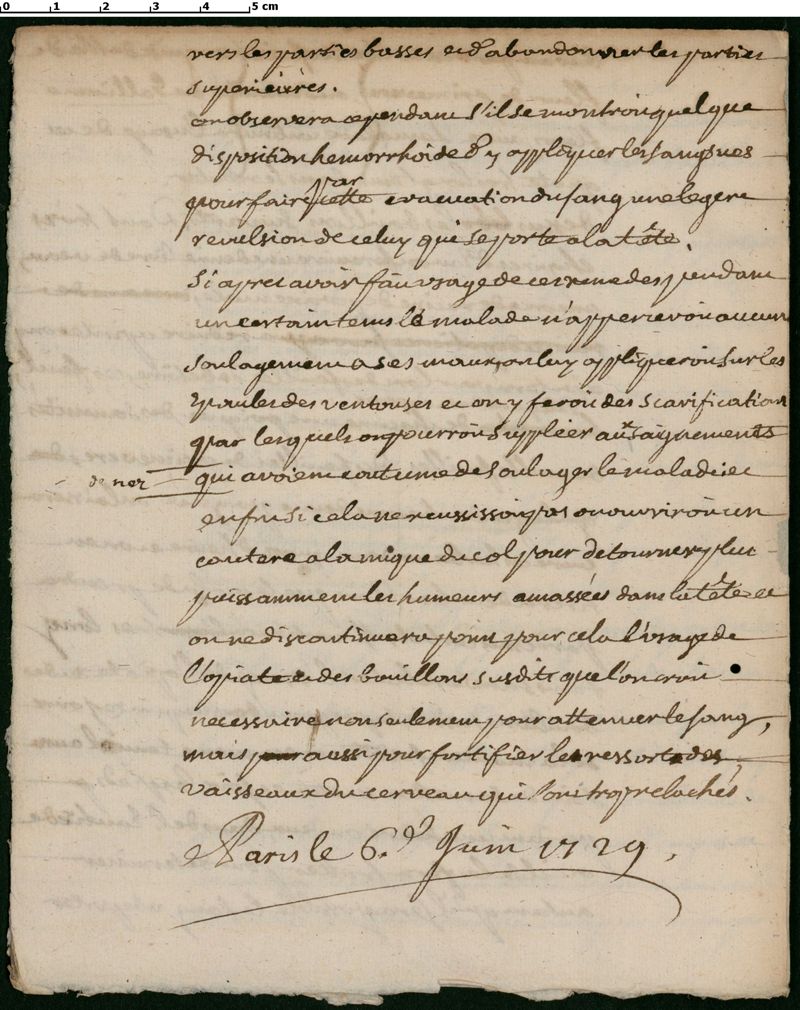 0 1 2 3 4 5 cm
vers les parties basses et d'abandonner les parties
superieures.
on observera cependant s'il se montroit quelque
disposition hemorrhoide d'y appliquer les sangsues
par
pour faire cette evacuation du sang une legere
revulsion de celuy qui se porte a la tête.
si apres avoir fait usage de ces remedes pendant
un certain tems le malade n'appercevoit aucun
soulagement a ses maux, on luy appliqueroit sur les
epaules des ventouses et on y feroit des scarifications
par lesquels on pourroit suppléer aux saignements
de nez qui avoient coutume de soulager le malade et
enfin si cela ne reussissoit pas on ouvriroit un
cautere a la nuque du col pour detourner plus
puissamment les humeurs amassées dans la tête et
on ne discontinuera point pour cela l'usage de
l'opiate et des bouillons susdits que l'on croit
necessaire non seulement pour attenuer le sang,
mais aussi pour fortifier les ressorts des
vaisseaux du cerveau qui sont trop relachés.
a Paris le 6.e Juin 1729.